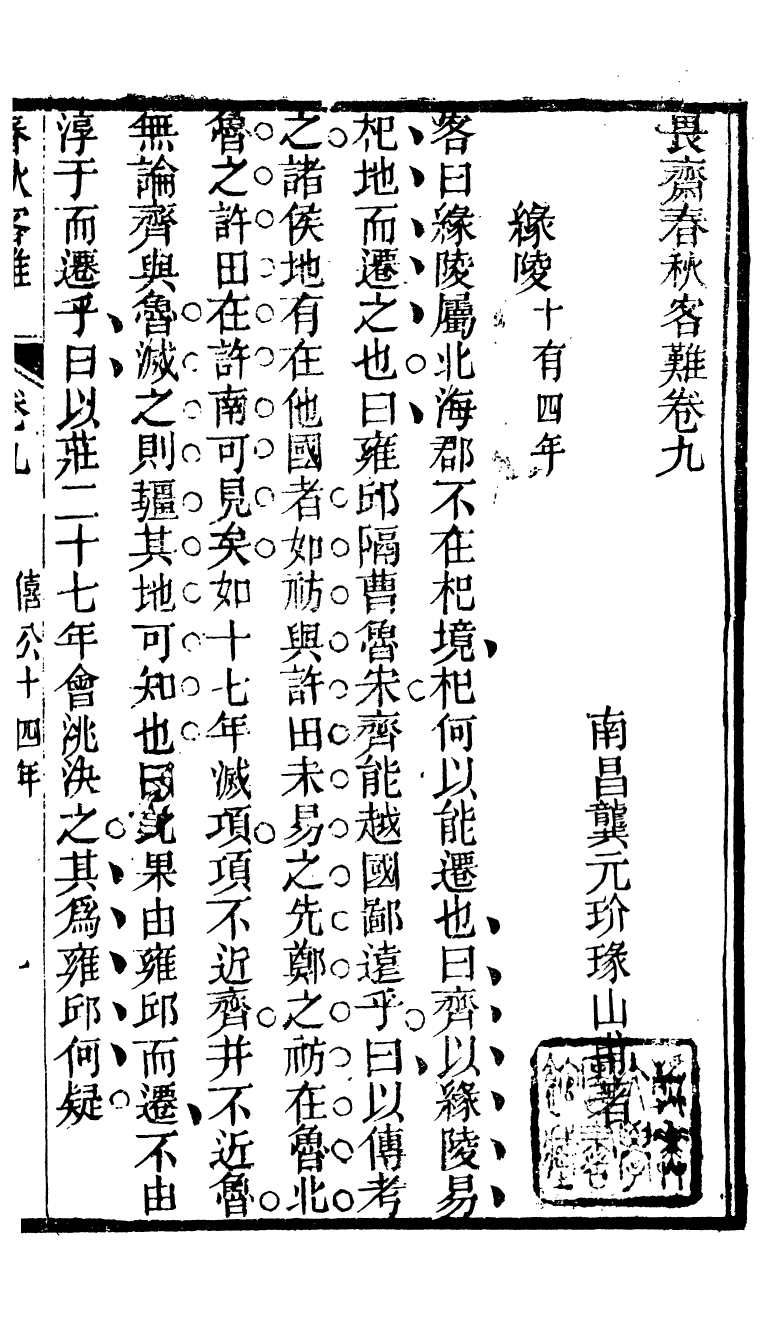 畏齋春秋客難卷九
南昌龔元玠瑑山甫著
緣陵十有四年
客曰緣陵屬北海郡不在杞境杞何以能遷也曰齊以緣陵易
杞地而遷之也曰雍邱隔曹魯宋齊能越國鄙遠乎曰以傳考
之諸侯地有在他國者如祊與許田未易之先鄭之祊在魯北
魯之許田在許南可見矣如十七年滅項項不近齊并不近魯
無論齊與魯滅之則疆其地可知也曰此果由雍邱而遷不由
淳于而遷乎曰以莊二十七年會洮決之其爲雍邱何疑
春秋客難 卷九 僖公十四年